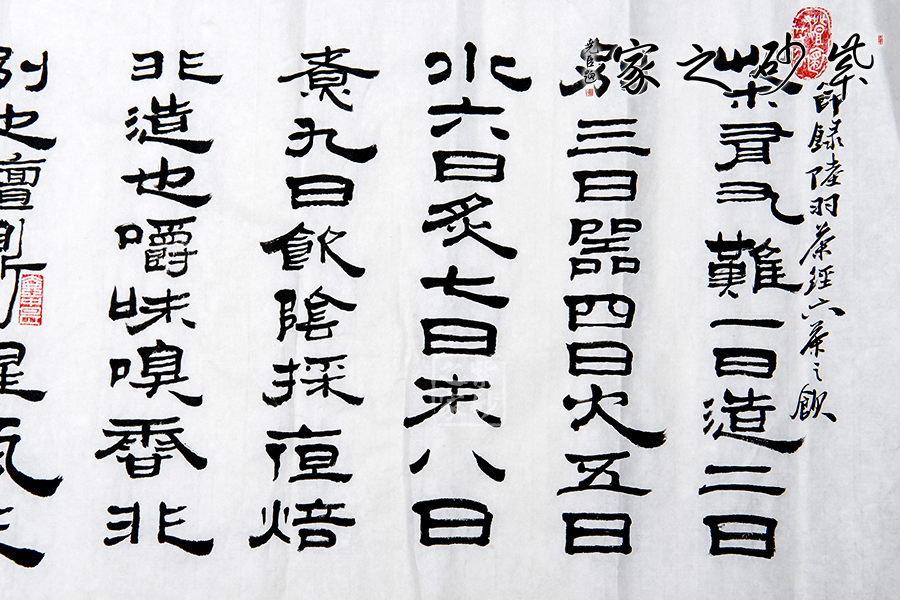 紫砂之家
節錄陸羽茶經六茶之飲
茶有九難一曰造二曰
別三曰器四曰火五曰
水六曰炙七曰末八曰
煮九曰飲陰採夜焙
非造也嚼味嗅香非
別也膻鼎